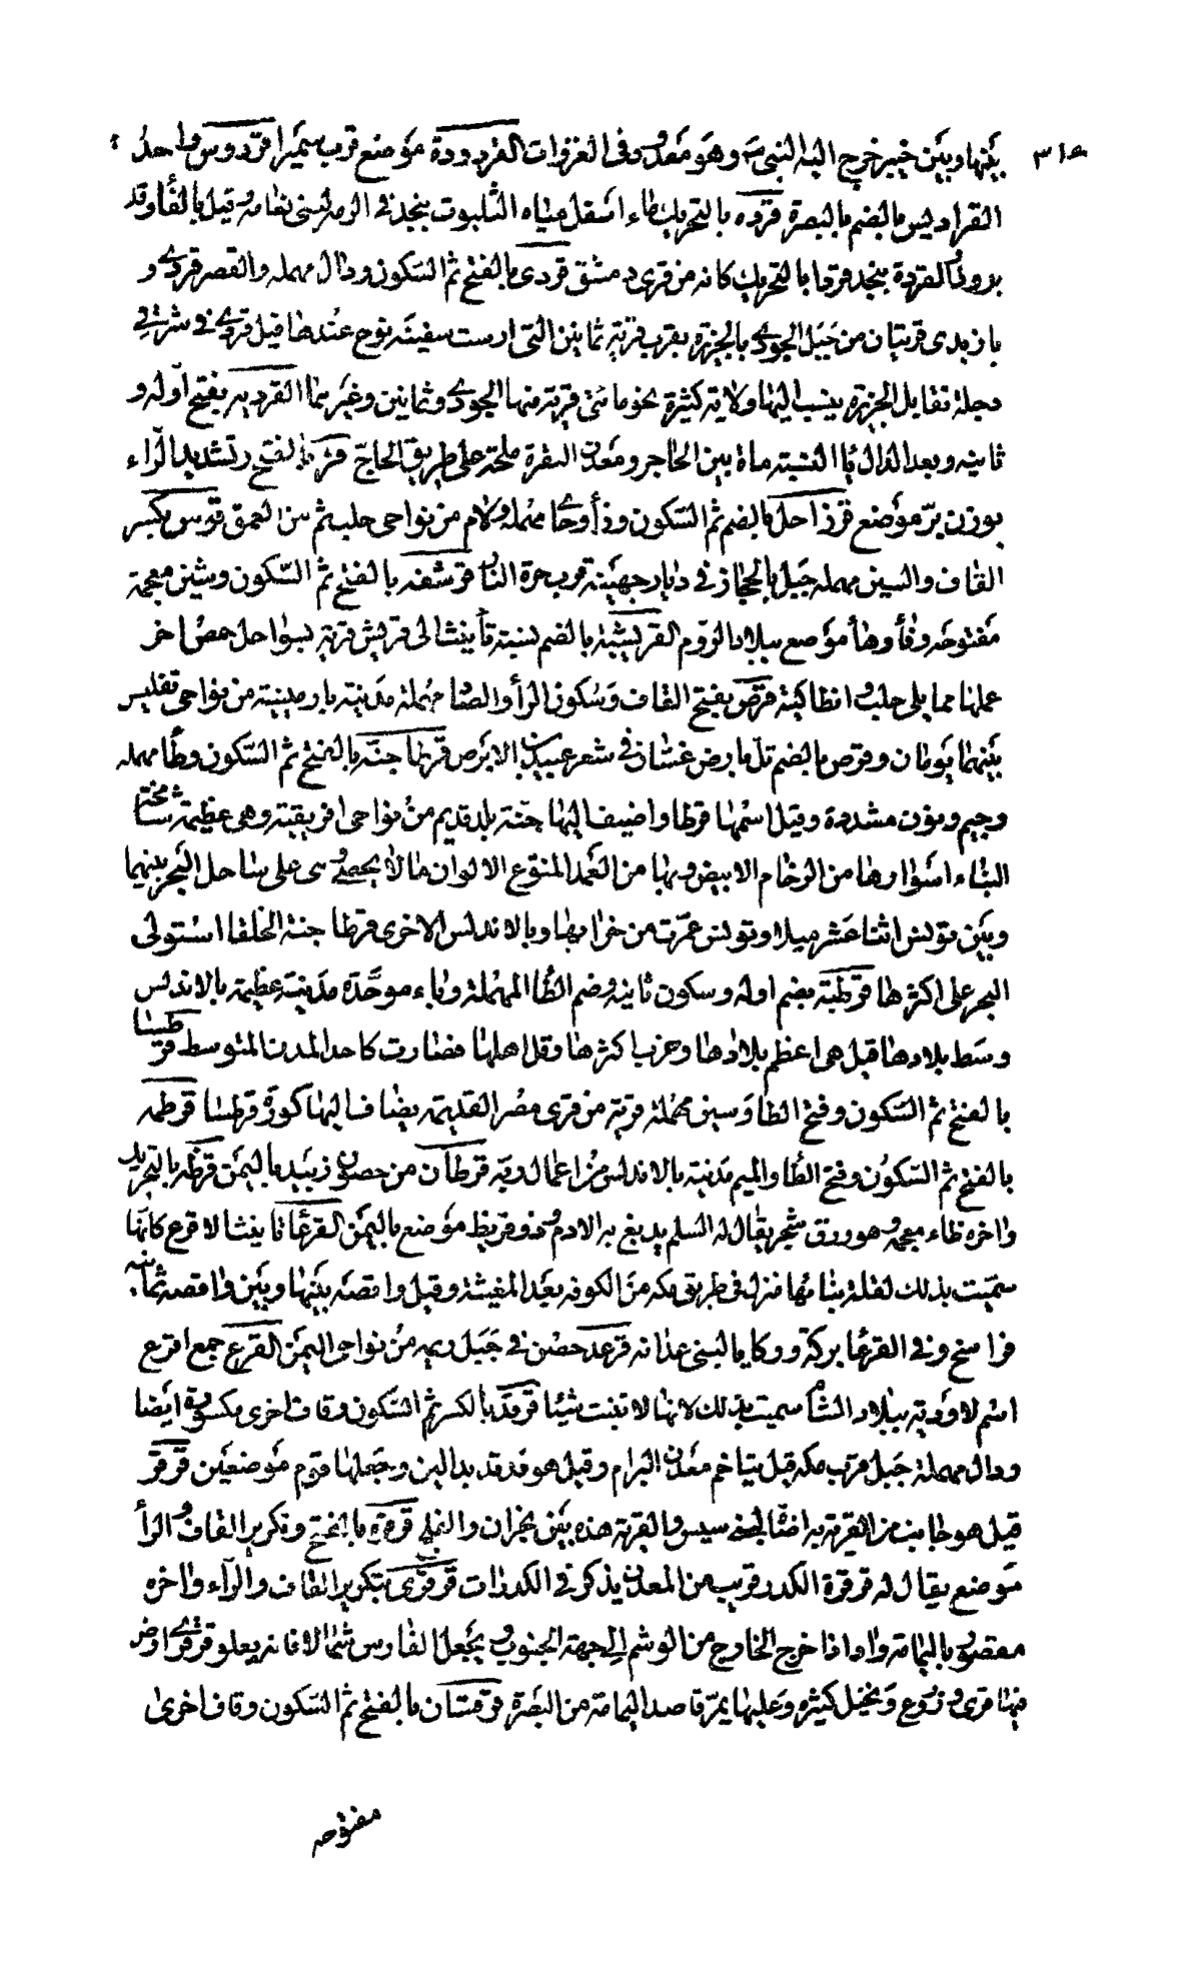 بينها وبين خيبر خرج اليه النبي ص وهو معدود في الغزوات القردودة موضع قرب سميرا قردوس واحد
القراديس بالضم بالبصرة قردة بالتحريك ماء اسفل مياه الثلبوت بنجد في الرمة لبنى نعامة وقيل بالفا وقد
بدوني القردة بنجد قردا بالتحريك كانه من قرى دمشق قردى بالفتح ثم السكون ودال مهمله والقصر قردى و
بازبدى قريتان من جبل الجودي بالجزيرة بقرب قرية ثمانين التى ارست سفينة نوح عندها قيل قردى في شرقي
دجلة تقابل الجزيرة ينسب اليها ولاية كثيرة نحو مائتى قرية منها الجودي وثمانين وغيرهما القرديه بفتح اوله و
ثانيه وبعد الدال يا النسبة ماة بين الحاجر ومعدن النقرة ملحة على طريق الحاج قر بالفتح وتشديد الراء
بوزن بر موضع قرزاحل بالضم ثم السكون وزا وحا مهملة ولام من نواحى حلب ثم من العمق قرس بكسر
القاف والسين مهمله جبل بالحجاز في ديار جهينة قرب حرة النار قرشفه بالفتح ثم السكون وشين معجمة
مفتوحه وفا وها موضع ببلاد الروم القريشية بالضم نسبة تانيث الى قريش قرية بسواحل حمص اخر
عملها مما يلى حلب وانطاكية قرص بفتح القاف وسكون الرا والصاد مهملة مدينة بارمينية من نواحى تفليس
بينهما يومان وقرص بالضم تل بارض غسان في شعر عبيد بن الابرص قرطاجنة بالفتح ثم السكون وطا مهمله
وجيم ونون مشددة وقيل اسمها قرطا واضيف اليها جنة بلد قديم من نواحى افريقية وهى عظيمة شامخة
البناء اسوارها من الرخام الابيض وبها من العمد المتنوع الالوان ما لا يحصى وهى على ساحل البحر بينهما
وبين تونس اثنا عشر ميلا وتونس عمرت من خرابها وبالاندلس الاخرى قرطاجنة الخلفا استولى
البحر على اكثرها قرطبة بضم اوله وسكون ثانيه وضم الطا المهملة وباء موحدة مدينة عظيمة بالاندلس
وسط بلادها قيل هى اعظم بلادها وخرب اكثرها وقل اهلها فصارت كاحد المدن المتوسط قرطسا
بالفتح ثم السكون وفتح الطا وسين مهملة قرية من قرى مصر القديمة يضاف اليها كورة قرطسا قرطمه
بالفتح ثم السكون وفتح الطا والميم مدينة بالاندلس من اعمال رية قرطان من حصون زبيد باليمن قرظه بالتحريك
واخره ظاء معجمة وهو ورق شجر يقال له السلم يدبغ به الادم وذو قريظ موضع باليمن القرعا تانيث الاقرع كانها
سميت بذلك لقلة نباتها منزل في طريق مكة من الكوفه بعد المغيثة وقبل واقصه بينها وبين واقصه ثمانية
فراسخ وفي القرعا بركة وركايا لبنى غدانه قرعد حصن في جبل ريمه من نواحى اليمن القرع جمع اقرع
اسم لاودية ببلاد الشام سميت بذلك لانها لا تنبت شيئا قرقد بالكسر ثم السكون وقاف اخرى مكسورة ايضا
ودال مهملة جبل قرب مكه قيل يتاخم معدن البرام وقيل هو قدقد بدالين وجعلها قوم موضعين قرقر
قيل هو جانب من القرية به اضاة لبنى سيس والقرية هذه بين نجران والفلج قرقره بالفتح وتكرير القاف والرا
موضع يقال له قرقرة الكدر قريب من المعدن يذكر في الكدرات قرقرى بتكرير القاف والراء واخره
مقصور باليمامة واد اذا خرج الخارج من الوشم الى جهة الجنوب وجعل الفارس شمالا فانه يعلو قرقرى ارض
فيها قرى وزروع ونخيل كثيره وعليها يمر قاصد اليمامة من البصرة قرقسان بالفتح ثم السكون وقاف اخرى
مفتوحه